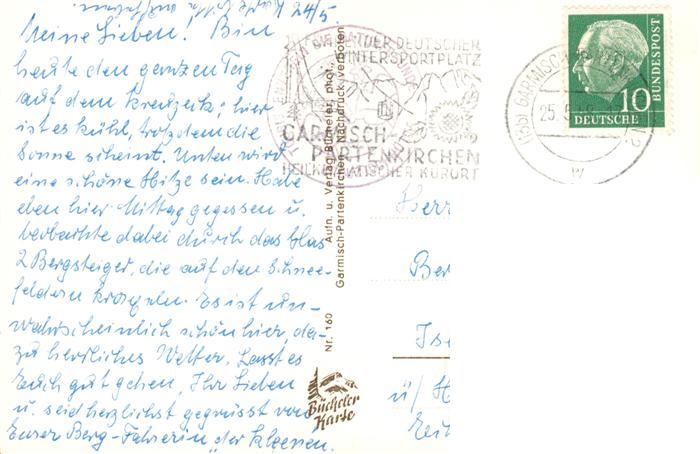 24/5
Meine Lieben! Bin
heute den ganzen Tag
auf dem Kreuzeck; hier
ist es kühl, trotzdem die
Sonne scheint. Unten wird
eine schöne Hitze sein. Habe
eben hier Mittag gegessen u.
beobachte dabei durch das Glas
2 Bergsteiger, die auf den Schnee-
feldern kraxeln. Es ist un-
wahrscheinlich schön hier, da-
zu herrliches Wetter. Lasst es
Euch gut gehen, Ihr Lieben
u. seid herzlichst gegrüsst von
Eurer Berg-Fahrerin, der Kleenen.
Aufn. u. Verlag Bücheler, phot.,
Garmisch-Partenkirchen Nachdruck verboten
Nr. 160
Bücheler
Karte
DEUTSCHER
WINTERSPORTPLATZ
GARMISCH-
PARTENKIRCHEN
HEILKLIMATISCHER KURORT
GARMISCH-
25.5.
W
10
DEUTSCHE
BUNDESPOST
Herr
Ber
Ise
ü/ H